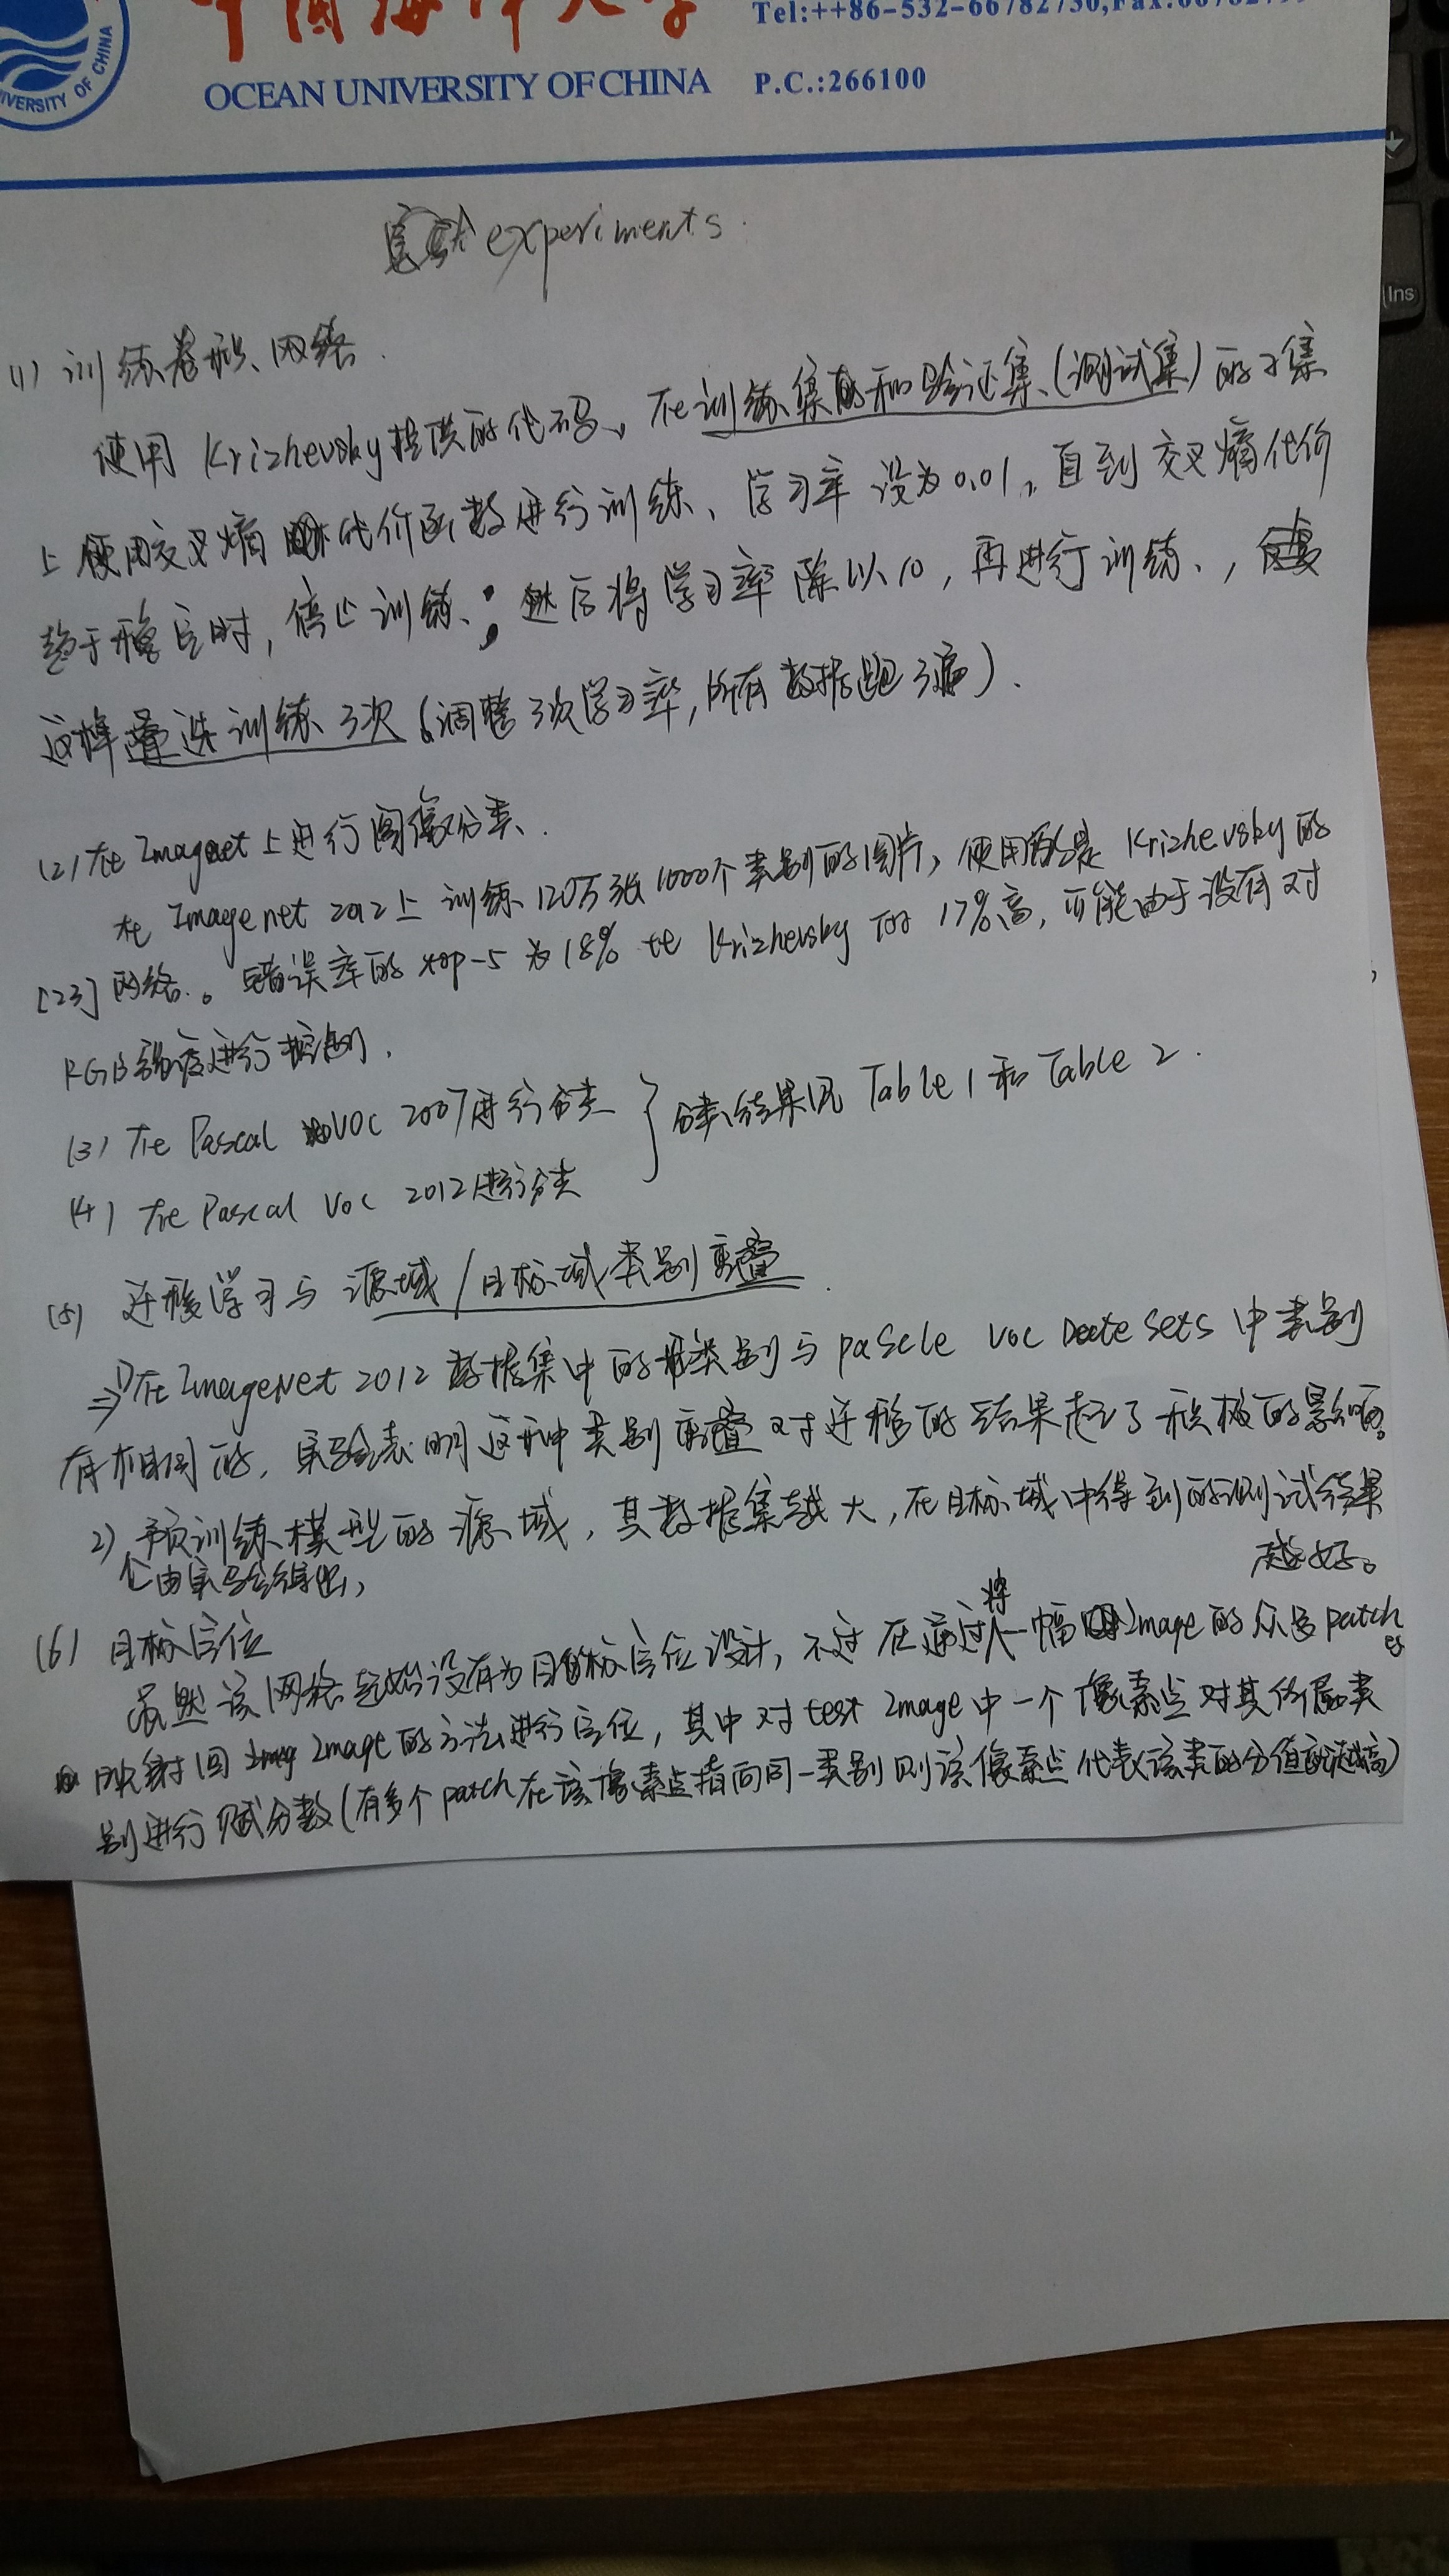 中国海洋大学
Tel:++86-532-66782730,Fax:
OCEAN UNIVERSITY OF CHINA P.C.:266100
IVERSITY OF CHINA
Ins
experiments.
(1) 训练卷积网络.
使用Krizhevsky提供的代码、在训练集和验证集(测试集)的子集
上使用交叉熵代价函数进行训练、学习率设为0.01,直到交叉熵代价
趋于稳定时,停止训练;然后将学习率除以10,再进行训练,反复
这样重迭训练3次(调整3次学习率,所有数据跑3遍).
(2)在Imagenet上进行图像分类.
在Imagenet 2012上训练120万张1000个类别的图片,使用的是Krizhevsky的
[23]网络。错误率的top-5为18% 比Krizhevsky的17%高,可能由于没有对
RGB强度进行控制.
(3) 在Pascal VOC 2007进行分类 } 分类结果见Table 1和Table 2.
(4) 在Pascal VOC 2012进行分类
(5) 迁移学习与源域/目标域类别重叠.
⇒1)在ImageNet 2012数据集中的类别与pascle VOC Datesets中类别
有相同的,实验表明这种类别重叠对迁移的结果起了积极的影响。
2) 预训练模型的源域,其数据集越大,在目标域中得到的测试结果
越好。
由实验得出,
(6) 目标定位
虽然该网络起始没有为目标定位设计,不过在通过将一幅Image的众多patch
es
映射回Image的方法进行定位,其中对test Image中一个像素点对其所属类
别进行赋分数(有多个patch在该像素点指向同一类别则该像素点代表该类的分值就越高)